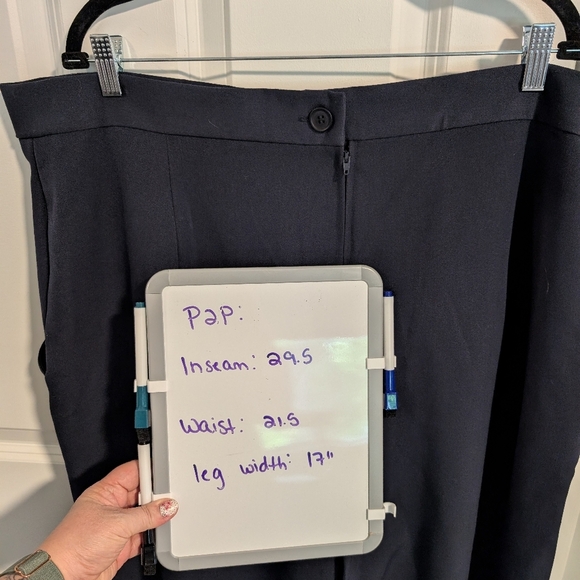 P2P:
Inseam: 29.5
Waist: 21.5
leg width: 17"